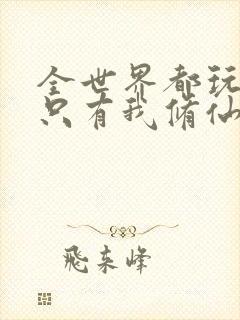 全世界都玩
只有我脩仙
飛来峰